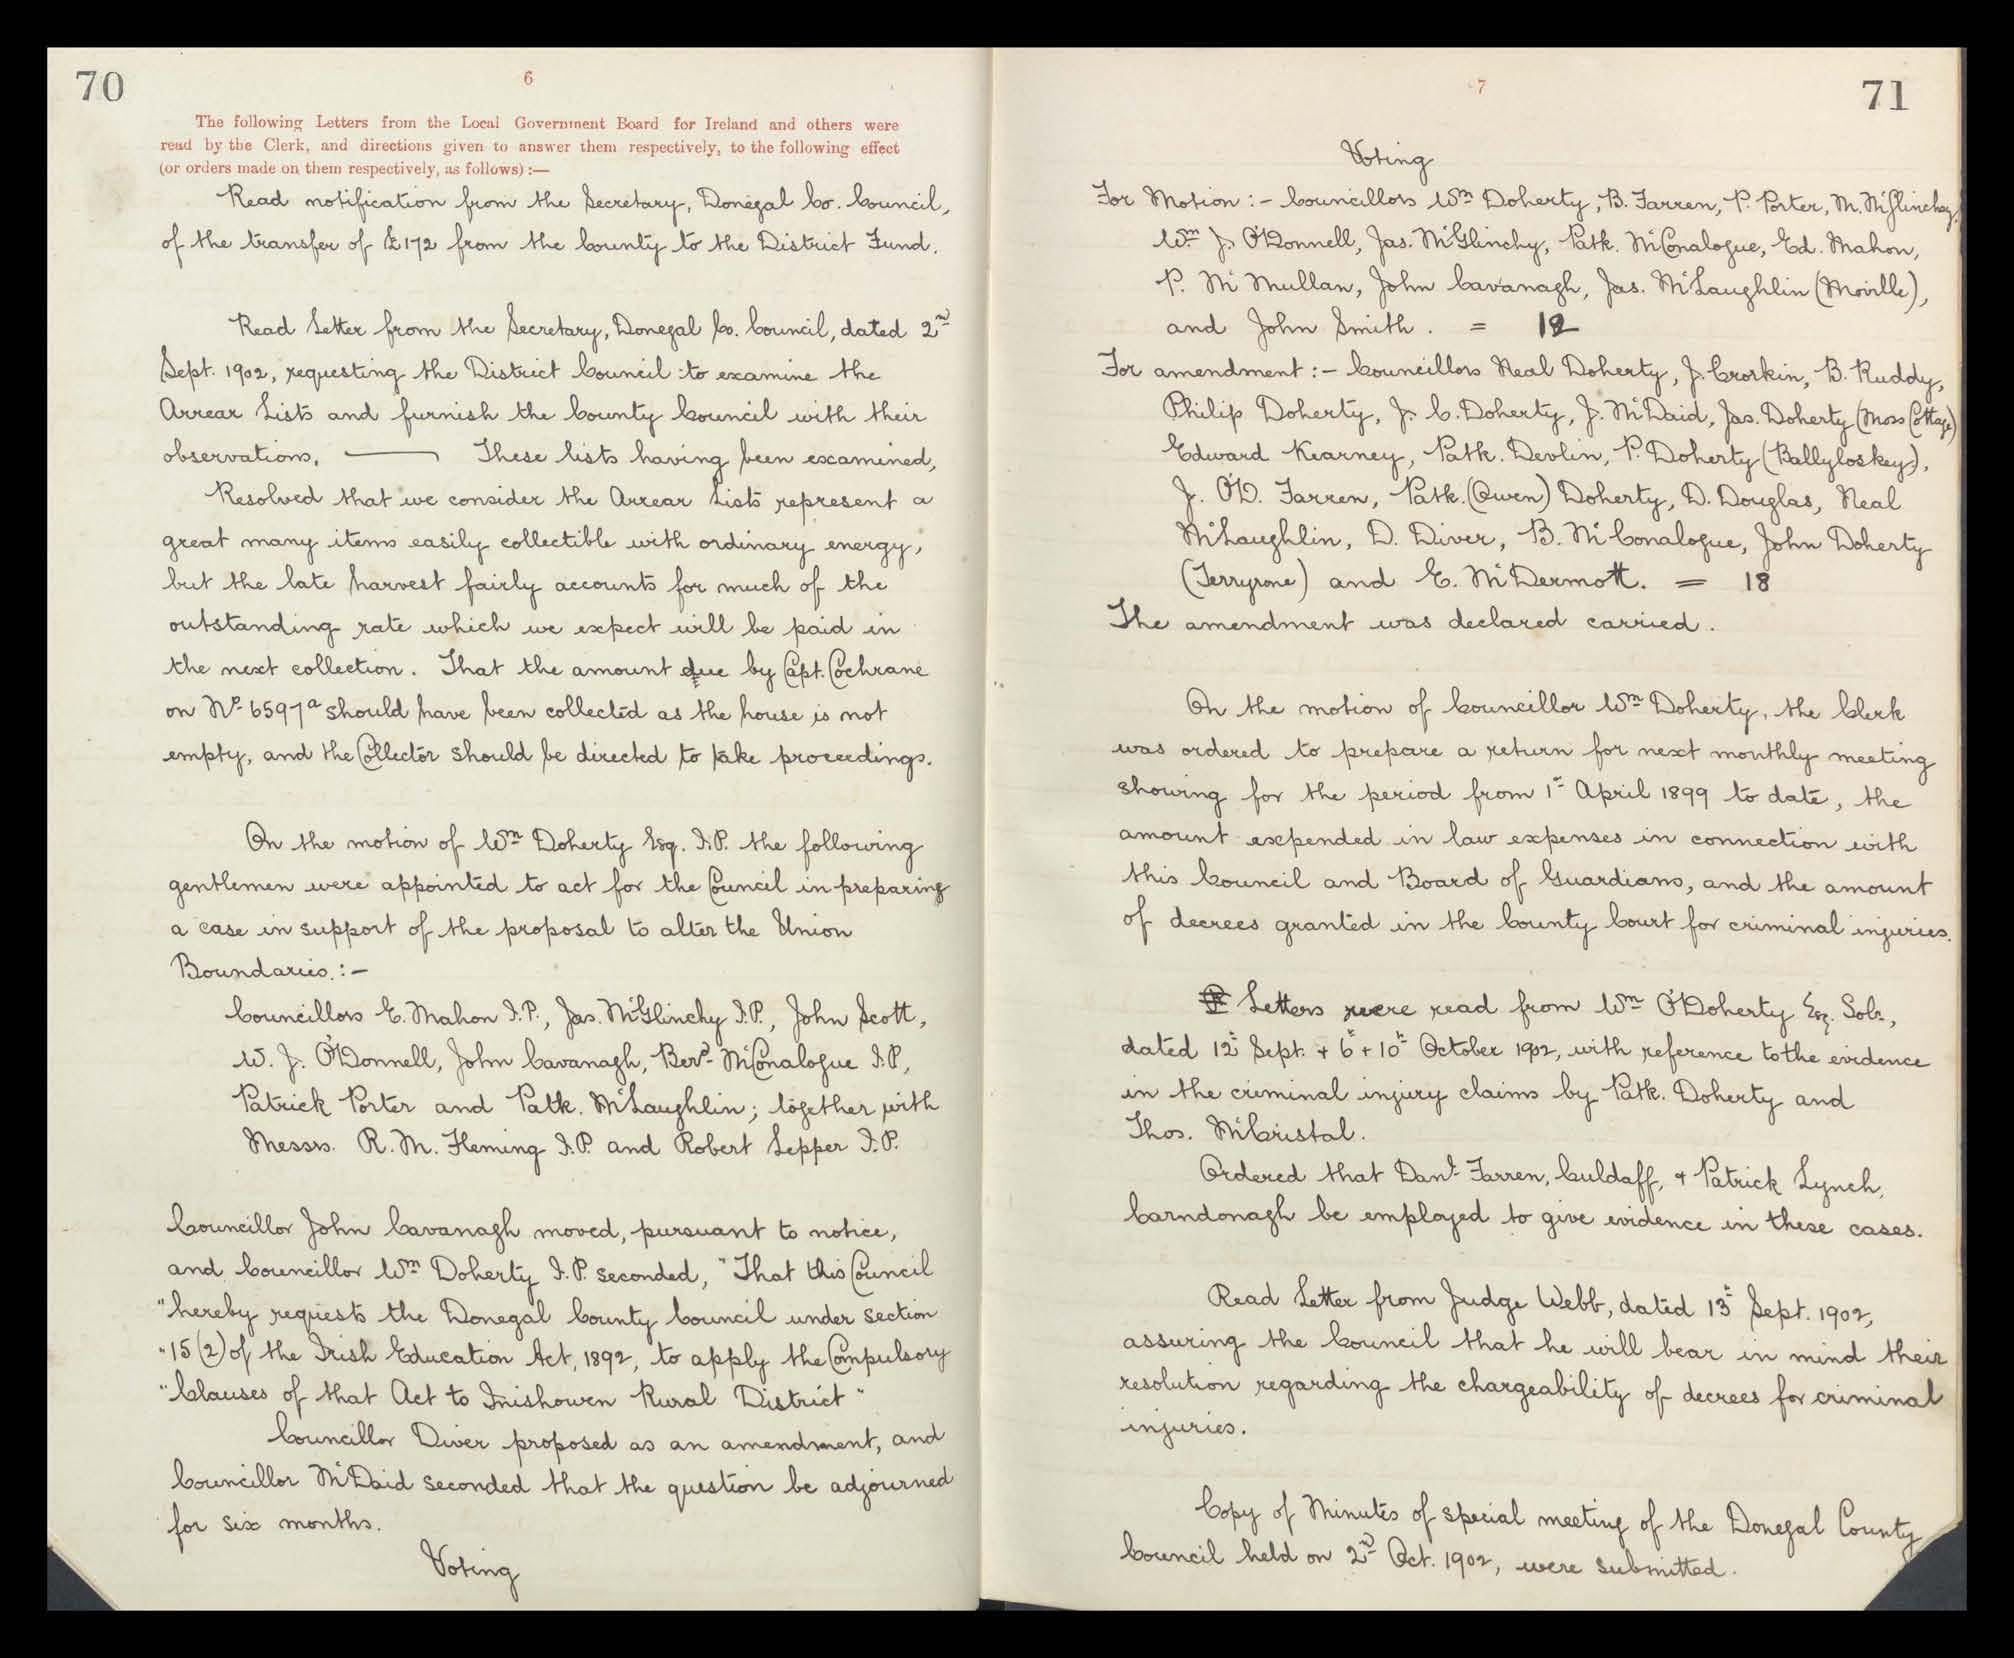 70
6
The following Letters from the Local Government Board for Ireland and others were
read by the Clerk, and directions given to answer them respectively, to the following effect
(or orders made on them respectively, as follows) :—
Read notification from the Secretary, Donegal Co. Council,
of the transfer of £172 from the County to the District Fund.
Read Letter from the Secretary, Donegal Co. Council, dated 2nd
Sept. 1902, requesting the District Council to examine the
Arrear Lists and furnish the County Council with their
observations. —— These lists having been examined,
Resolved that we consider the Arrear Lists represent a
great many items easily collectible with ordinary energy,
but the late harvest fairly accounts for much of the
outstanding rate which we expect will be paid in
the next collection. That the amount due by Capt. Cochrane
on No 6597a should have been collected as the house is not
empty, and the Collector should be directed to take proceedings.
On the motion of Wm Doherty Esq. J.P. the following
gentlemen were appointed to act for the Council in preparing
a case in support of the proposal to alter the Union
Boundaries :—
Councillors E. Mahon J.P., Jas. McGlinchy J.P., John Scott,
W. J. O'Donnell, John Cavanagh, Bernd McConalogue J.P.,
Patrick Porter and Patk. McLaughlin; together with
Messrs. R. M. Fleming J.P. and Robert Lepper J.P.
Councillor John Cavanagh moved, pursuant to notice,
and Councillor Wm Doherty J.P. seconded, "That this Council
"hereby requests the Donegal County Council under section
"15 (2) of the Irish Education Act, 1892, to apply the Compulsory
"Clauses of that Act to Inishowen Rural District"
Councillor Diver proposed as an amendment, and
Councillor McDaid seconded that the question be adjourned
for six months.
Voting
7
71
Voting
For Motion :— Councillors Wm Doherty, B. Farren, P. Porter, M. McGlinchey,
Wm J. O'Donnell, Jas. McGlinchy, Patk. McConalogue, Ed. Mahon,
P. McMullan, John Cavanagh, Jas. McLaughlin (Moville),
and John Smith. = 12
For amendment :— Councillors Neal Doherty, J. Croskin, B. Ruddy,
Philip Doherty, J. C. Doherty, J. McDaid, Jas. Doherty (Moss Cottage)
Edward Kearney, Patk. Devlin, P. Doherty (Ballyloskey),
J. O'D. Farren, Patk. (Owen) Doherty, D. Douglas, Neal
McLaughlin, D. Diver, B. McConalogue, John Doherty
(Terryrone) and E. McDermott. = 18
The amendment was declared carried.
On the motion of Councillor Wm Doherty, the Clerk
was ordered to prepare a return for next monthly meeting
showing for the period from 1st April 1899 to date, the
amount expended in law expenses in connection with
this Council and Board of Guardians, and the amount
of decrees granted in the County Court for criminal injuries.
Letters were read from Wm O'Doherty Esq. Solr.,
dated 12th Sept. + 6th + 10th October 1902, with reference to the evidence
in the criminal injury claims by Patk. Doherty and
Thos. McCristal.
Ordered that Danl Farren, Culdaff, + Patrick Lynch,
Carndonagh be employed to give evidence in these cases.
Read Letter from Judge Webb, dated 13th Sept. 1902,
assuring the Council that he will bear in mind their
resolution regarding the chargeability of decrees for criminal
injuries.
Copy of Minutes of special meeting of the Donegal County
Council held on 2nd Oct. 1902, were submitted.